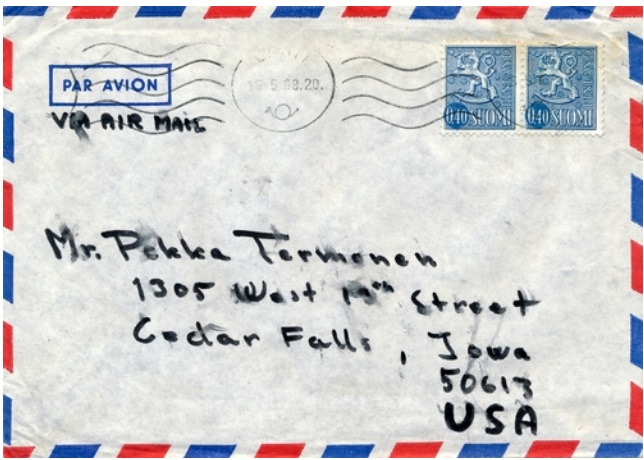 PAR AVION
VIA AIR MAIL
0,40 SUOMI 0,40 SUOMI
Mr. Pekka Termonen
1305 West 19th Street
Cedar Falls, Iowa
50613
USA